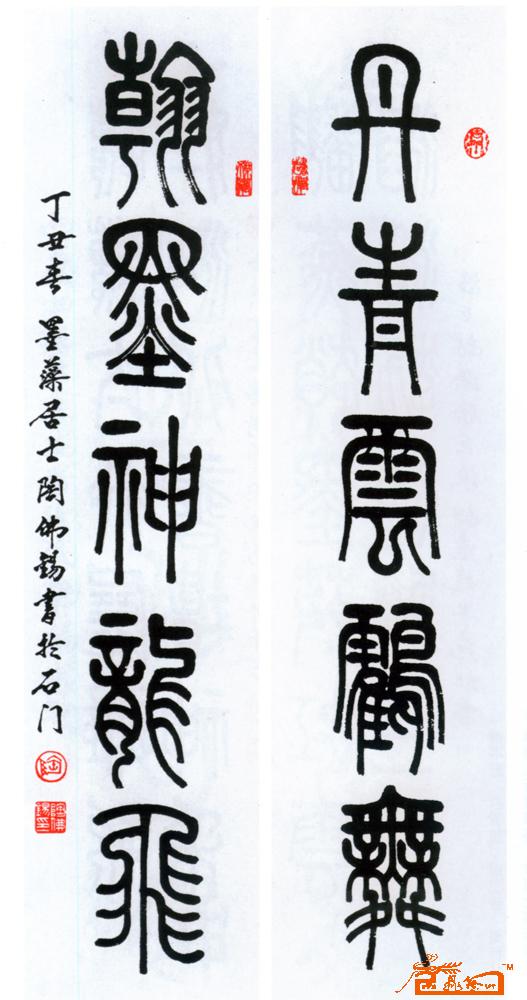 丹青雲鶴舞
翰墨神龍飛
丁丑春 墨藻居士陶佛錫書於石门